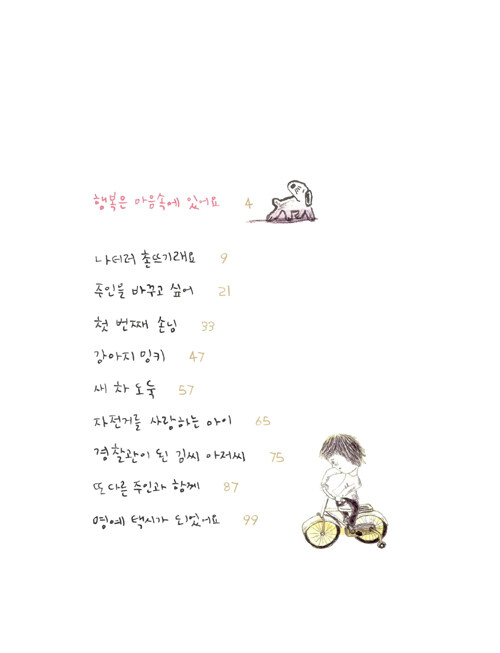 행복은 마음속에 있어요 4
나더러 촌뜨기래요 9
주인을 바꾸고 싶어 21
첫 번째 손님 33
강아지 밍키 47
새 차 도둑 57
자전거를 사랑하는 아이 65
경찰관이 된 김씨 아저씨 75
또 다른 주인과 함께 87
명예 택시가 되었어요 99